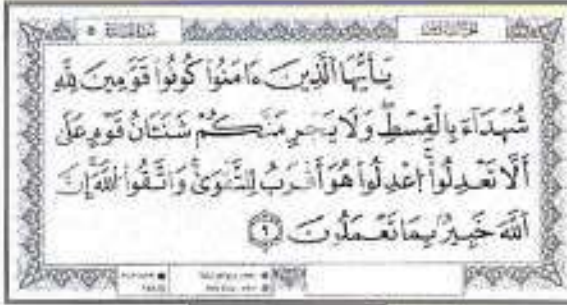 سورة المائدة ٥
يَـٰٓأَيُّهَا ٱلَّذِينَ ءَامَنُوا۟ كُونُوا۟ قَوَّٰمِينَ لِلَّهِ
شُهَدَآءَ بِٱلْقِسْطِ ۖ وَلَا يَجْرِمَنَّكُمْ شَنَـَٔانُ قَوْمٍ عَلَىٰٓ
أَلَّا تَعْدِلُوا۟ ۚ ٱعْدِلُوا۟ هُوَ أَقْرَبُ لِلتَّقْوَىٰ ۖ وَٱتَّقُوا۟ ٱللَّهَ ۚ إِنَّ
ٱللَّهَ خَبِيرٌۢ بِمَا تَعْمَلُونَ